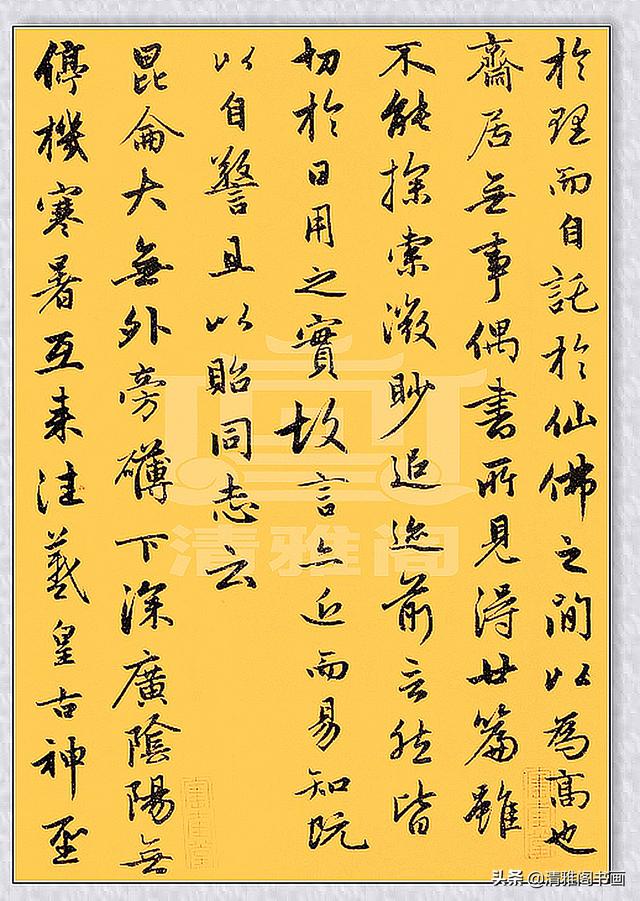 於理而自託於仙佛之間以為高也
齋居無事偶書所見得廿篇雖
不能探索微眇追迹前言然皆
切於日用之實故言亦近而易知既
以自警且以貽同志云
昆侖大無外旁礴下深廣陰陽無
停機寒暑互来往羲皇古神聖
清雅阁
头条 @清雅阁书画